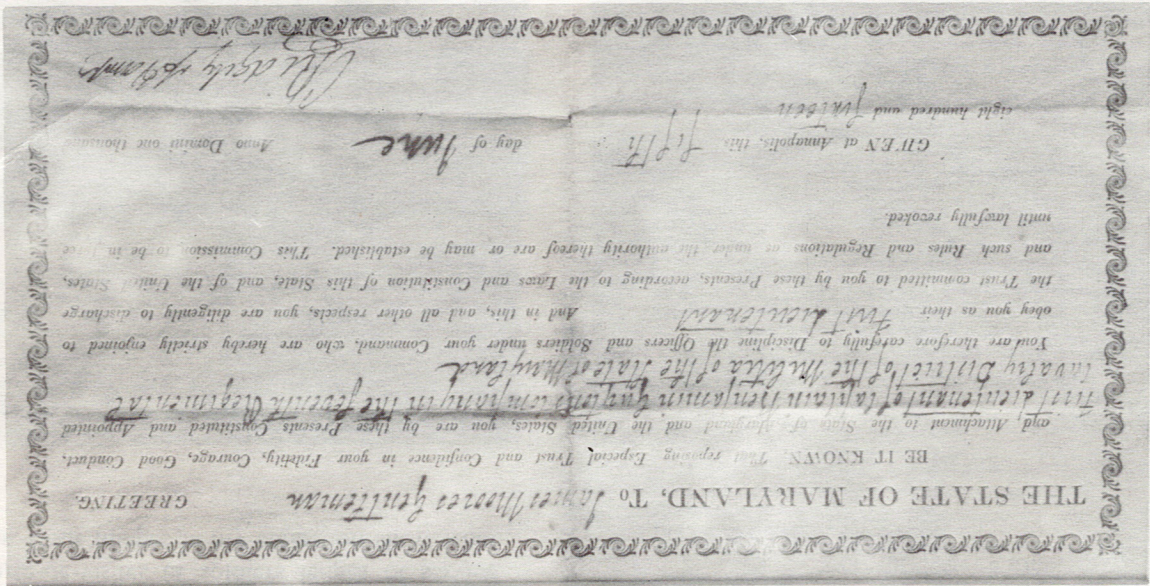 THE STATE OF MARYLAND, To James Moores Gentleman GREETING.
BE IT KNOWN, That reposing Especial Trust and Confidence in your Fidelity, Courage, Good Conduct,
and, Attachment to the State of Maryland and the United States, you are by these Presents Constituted and Appointed
First Lieutenant of Captain Benjamin Company in the Seventh Regimental
Cavalry District of the Militia of the State of Maryland
You are therefore carefully to Discipline the Officers and Soldiers under your Command, who are hereby strictly enjoined to
obey you as their First Lieutenant And in this, and all other respects, you are diligently to discharge
the Trust committed to you by these Presents, according to the Laws and Constitution of this State, and of the United States,
and such Rules and Regulations as under the authority thereof are or may be established. This Commission to be in force
until lawfully revoked.
GIVEN at Annapolis, this fifth day of June Anno Domini one thousand
eight hundred and
Ridgely of Hampt.